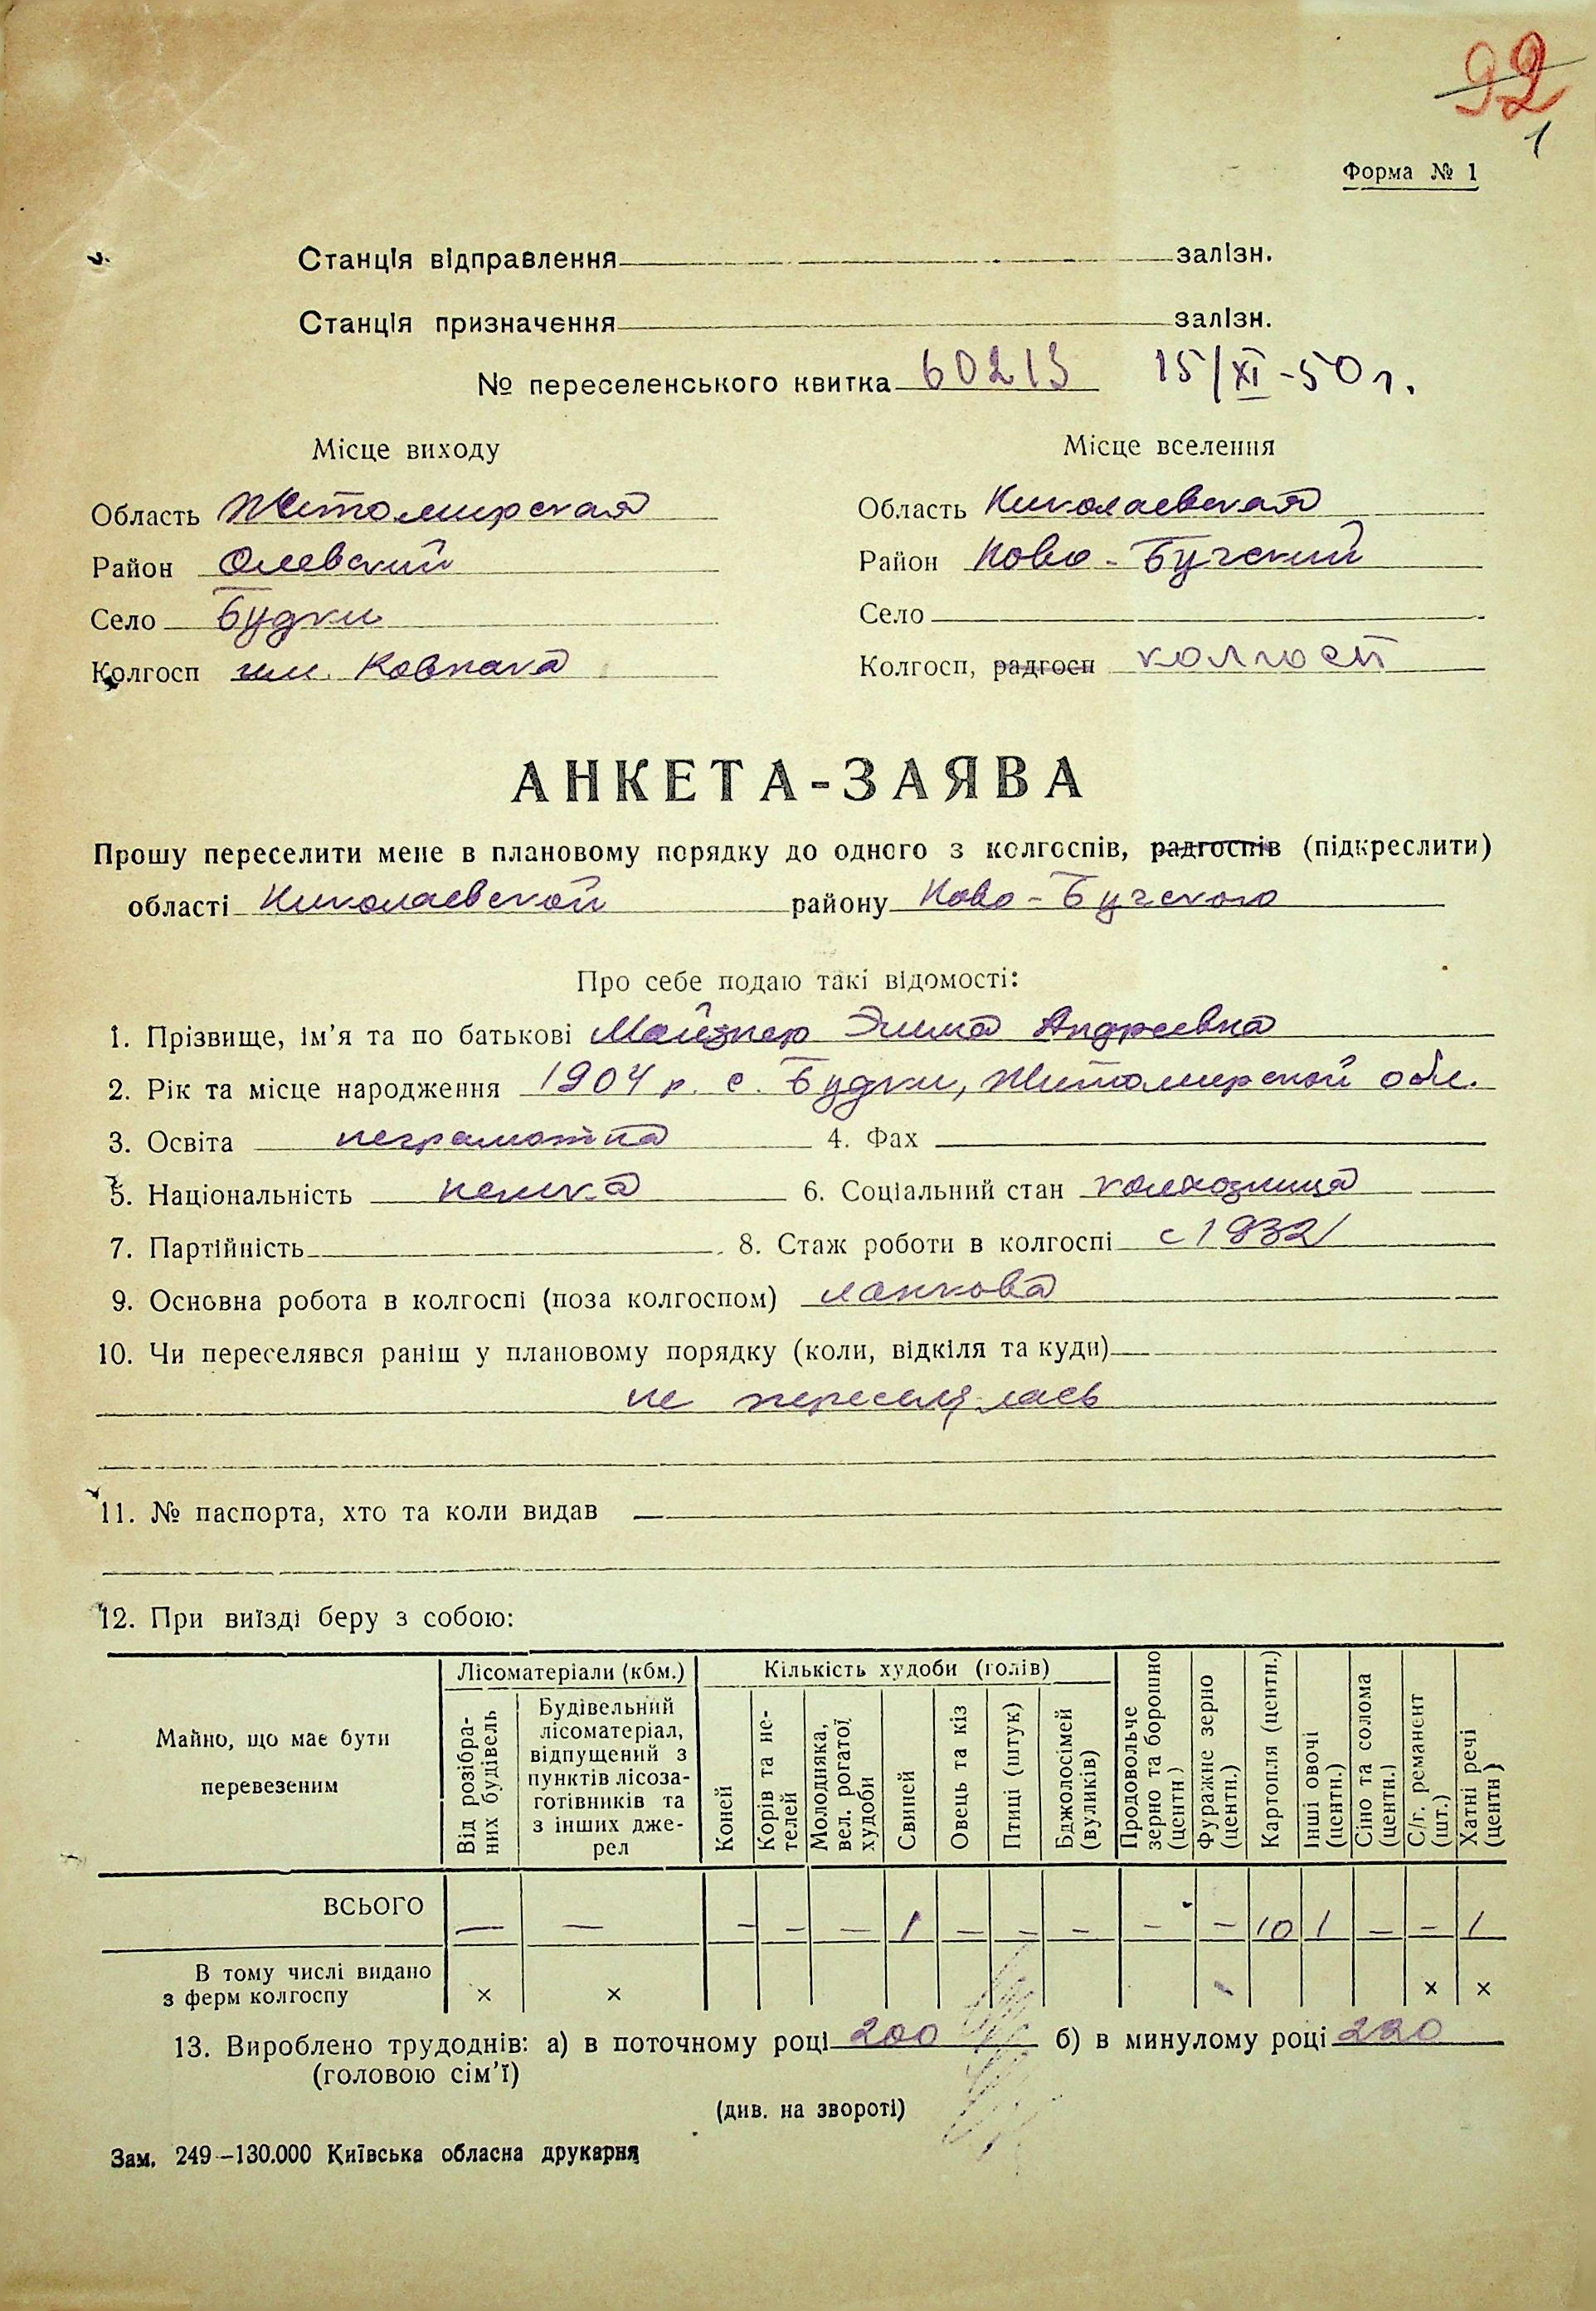 92
1
Форма № 1
Станція відправлення залізн.
Станція призначення залізн.
№ переселенського квитка 60213 15/XI-50 г.
Місце виходу
Місце вселення
Область Житомирская
Область Николаевская
Район Олевский
Район Ново-Бугский
Село Будки
Село
Колгосп им. Ковпака
Колгосп, радгосп колгосп
АНКЕТА-ЗАЯВА
Прошу переселити мене в плановому порядку до одного з колгоспів, радгоспів (підкреслити)
області Николаевской району Ново-Бугского
Про себе подаю такі відомості:
1. Прізвище, ім'я та по батькові Майзнер Эмма Андреевна
2. Рік та місце народження 1904 р. с. Будки, Житомирской обл.
3. Освіта неграмотна 4. Фах
5. Національність немка 6. Соціальний стан колхозница
7. Партійність 8. Стаж роботи в колгоспі с 1932
9. Основна робота в колгоспі (поза колгоспом) ланкова
10. Чи переселявся раніш у плановому порядку (коли, відкіля та куди)
не переселялась
11. № паспорта, хто та коли видав
12. При виїзді беру з собою:
Майно, що має бути перевезеним
Лісоматеріали (кбм.)
Кількість худоби (голів)
Від розібраних будівель
Будівельний лісоматеріал, відпущений з пунктів лісозаготівників та з інших джерел
Коней
Корів та нетелей
Молодняка, вел. рогатої худоби
Свиней
Овець та кіз
Птиці (штук)
Бджолосімей (вуликів)
Продовольче зерно та борошно (центн)
Фуражне зерно (центн.)
Картопля (центн.)
Інші овочі (центн.)
Сіно та солома (центн.)
С/г. реманент (шт.)
Хатні речі (центн)
ВСЬОГО — — – – — 1 – – – – – 10 1 – – 1
В тому числі видано з ферм колгоспу × × × ×
13. Вироблено трудоднів: а) в поточному році 200 б) в минулому році 220
(головою сім'ї)
(див. на звороті)
Зам. 249—130.000 Київська обласна друкарня